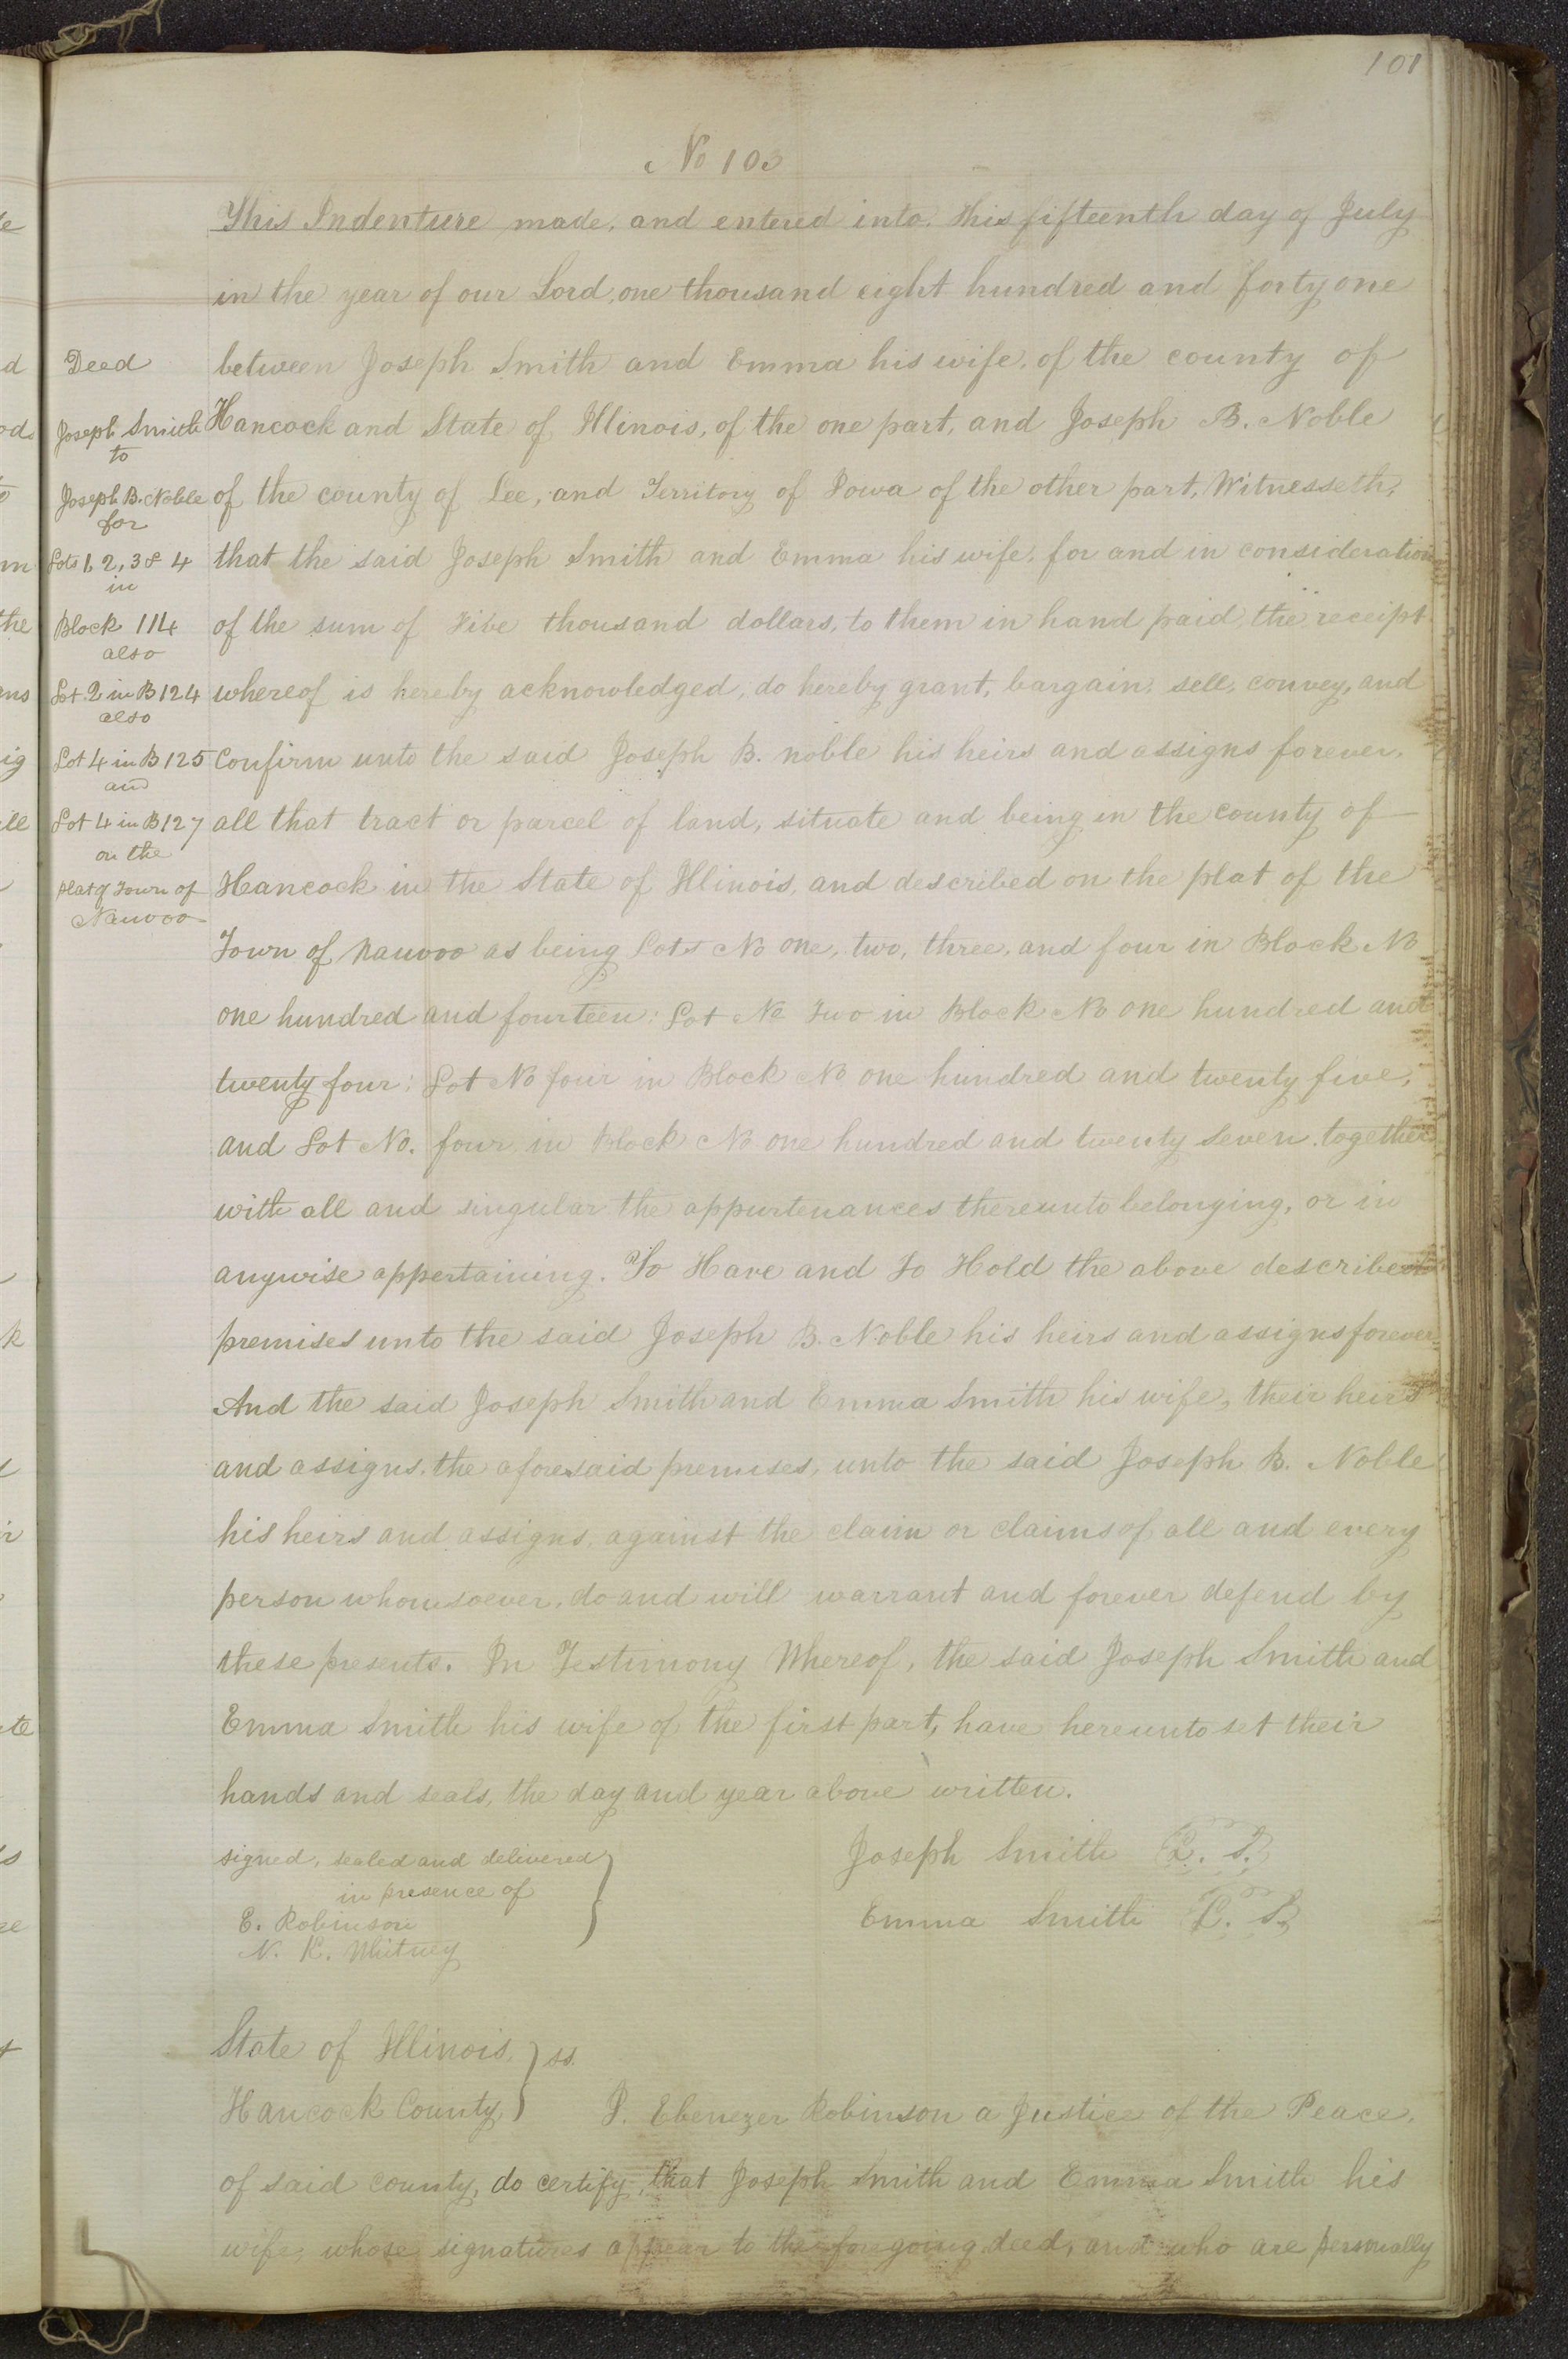 101
No 103
This Indenture made, and entered into. this fifteenth day of July
in the year of our Lord, one thousand eight hundred and forty one
Deed
between Joseph Smith and Emma his wife, of the county of
Joseph Smith
to
Hancock and State of Illinois, of the one part, and Joseph B. Noble
Joseph B. Noble
for
of the county of Lee, and Territory of Iowa of the other part, Witnesseth,
Lots 1, 2, 3 & 4
in
that the said Joseph Smith and Emma his wife, for and in consideration
Block 114
also
of the sum of Five thousand dollars, to them in hand paid, the receipt
Lot 2 in B 124
also
whereof is hereby acknowledged, do hereby grant, bargain, sell, convey, and
Lot 4 in B 125
and
Confirm unto the said Joseph B. noble his heirs and assigns forever,
Lot 4 in B 127
on the
all that tract or parcel of land, situate and being in the county of
plat of Town of
Nauvoo
Hancock in the State of Illinois, and described on the plat of the
Town of nauvoo as being Lots No one, two, three, and four in Block No
one hundred and fourteen: Lot No Two in Block No one hundred and
twenty four: Lot No four in Block No one hundred and twenty five,
and Lot No. four in Block No one hundred and twenty seven. together
with all and singular the appurtenances thereunto belonging, or in
anywise appertaining. To Have and To Hold the above described
premises unto the said Joseph B. Noble his heirs and assigns forever.
And the said Joseph Smith and Emma Smith his wife, their heirs
and assigns, the aforesaid premises, unto the said Joseph B. Noble
his heirs and assigns, against the claim or claims of all and every
person whomsoever, do and will warrant and forever defend by
these presents. In Testimony Whereof, the said Joseph Smith and
Emma Smith his wife of the first part, have hereunto set their
hands and seals, the day and year above written.
signed, sealed and delivered
in presence of
E. Robinson
N. K. Whitney
Joseph Smith L. S.
Emma Smith L. S.
State of Illinois, } ss.
Hancock County, } I. Ebenezer Robinson a Justice of the Peace,
of said county, do certify, that Joseph Smith and Emma Smith his
wife, whose signatures appear to the foregoing deed, and who are personally